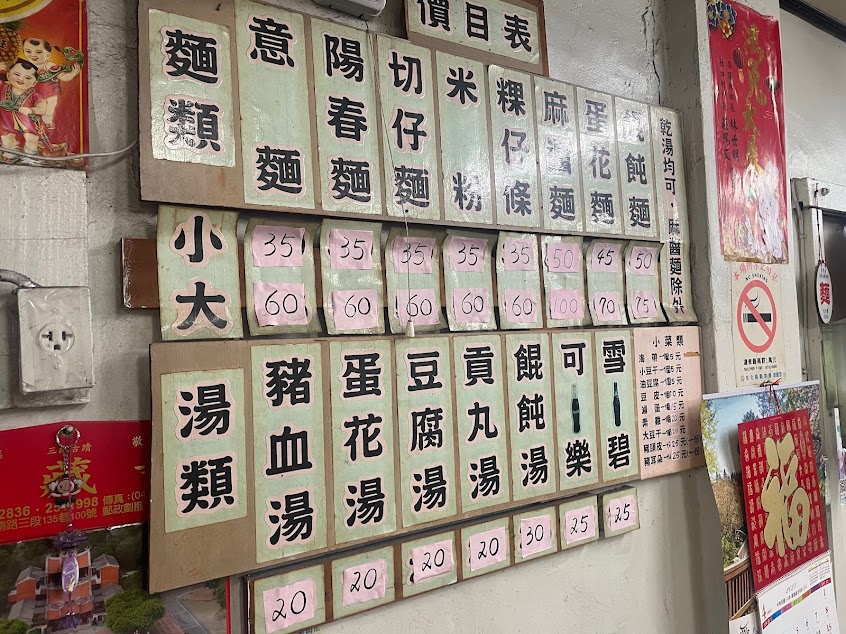 價目表
麵類
意麵
陽春麵
切仔麵
米粉
粿仔條
麻醬麵
蛋花麵
餛飩麵
乾湯均可，麻醬麵除外
小 35 35 35 35 35 50 45 50
大 60 60 60 60 60 100 70 75
湯類
豬血湯
蛋花湯
豆腐湯
貢丸湯
餛飩湯
可樂
雪碧
20 20 20 20 30 25 25
小菜類
海帶
小豆干
油豆腐
豆皮
滷蛋
素雞
大豆干
豬頭皮
豬耳朵
麵
福
2836
傳真：(04
路三段135巷100號
郵政劃撥
NO SMOKING